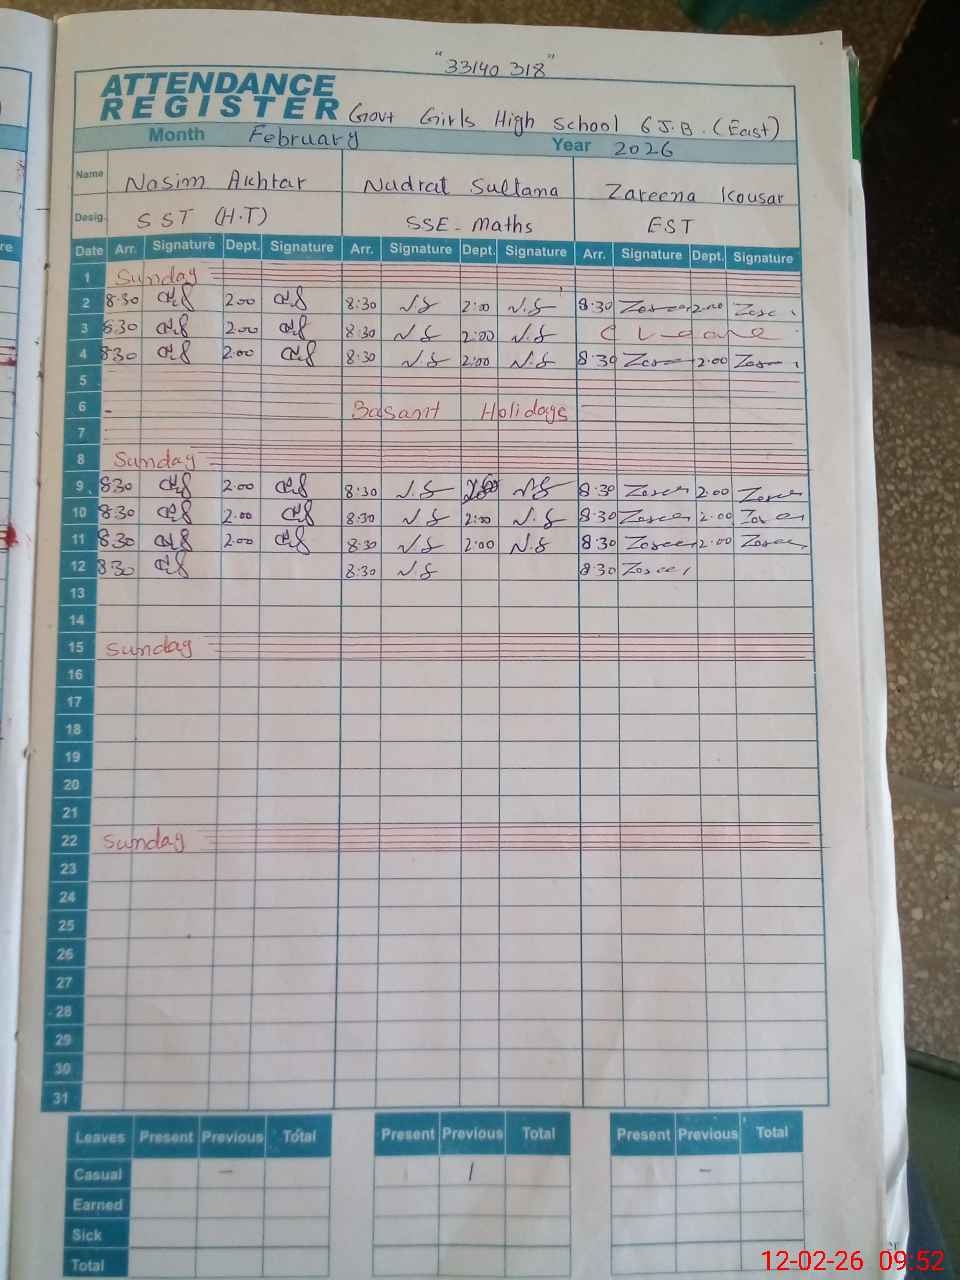 "33140318"
ATTENDANCE
REGISTER Govt Girls High School 6 J.B. (East)
Month February Year 2026
Name Nasim Akhtar Nudrat Sultana Zareena Kousar
Desig. SST (H.T) SSE - Maths EST
Date Arr. Signature Dept. Signature Arr. Signature Dept. Signature Arr. Signature Dept. Signature
1 Sunday
2 8:30 2:00 8:30 N.S 2:00 N.S 8:30 2:00
3 8:30 2:00 8:30 N.S 2:00 N.S C Leave
4 8:30 2:00 8:30 N.S 2:00 N.S 8:30 2:00
5
6 Basant Holidays
7
8 Sunday
9 8:30 2:00 8:30 N.S N.S 8:30 2:00
10 8:30 2:00 8:30 N.S 2:00 N.S 8:30 2:00
11 8:30 2:00 8:30 N.S 2:00 N.S 8:30 2:00
12 8:30 8:30 N.S 8:30
13
14
15 Sunday
16
17
18
19
20
21
22 Sunday
23
24
25
26
27
28
29
30
31
Leaves Present Previous Total Present Previous Total Present Previous Total
Casual - 1 -
Earned
Sick
Total
12-02-26 09:52